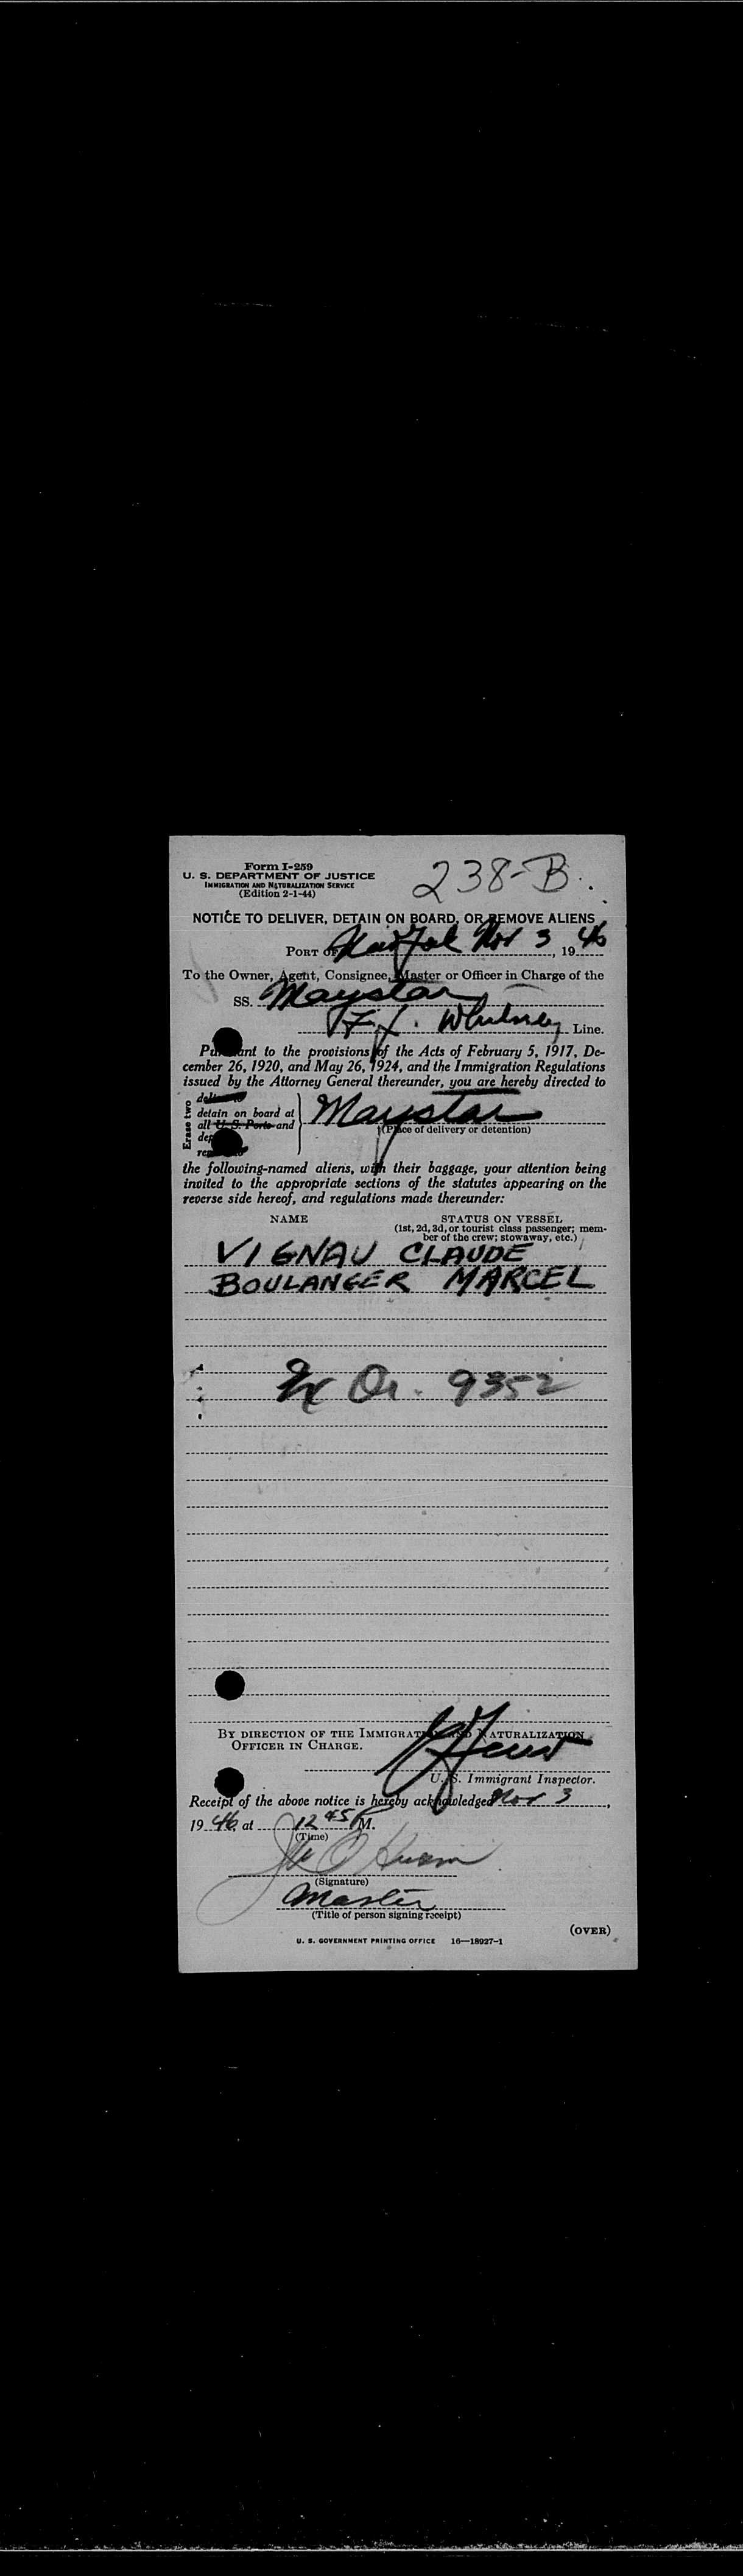 Form I-259
U. S. DEPARTMENT OF JUSTICE
IMMIGRATION AND NATURALIZATION SERVICE
(Edition 2-1-44)
238-B
NOTICE TO DELIVER, DETAIN ON BOARD, OR REMOVE ALIENS
PORT OF Nov 3, 19 46
To the Owner, Agent, Consignee, Master or Officer in Charge of the
SS. Maystar
Whitney Line.
Pursuant to the provisions of the Acts of February 5, 1917, De-
cember 26, 1920, and May 26, 1924, and the Immigration Regulations
issued by the Attorney General thereunder, you are hereby directed to
Erase two
deliver to
detain on board at
all U. S. Ports and
Maystar
(Place of delivery or detention)
the following-named aliens, with their baggage, your attention being
invited to the appropriate sections of the statutes appearing on the
reverse side hereof, and regulations made thereunder:
NAME STATUS ON VESSEL
(1st, 2d, 3d, or tourist class passenger; mem-
ber of the crew; stowaway, etc.)
VIGNAU CLAUDE
BOULANGER MARCEL
9352
BY DIRECTION OF THE IMMIGRATION AND NATURALIZATION
OFFICER IN CHARGE.
U. S. Immigrant Inspector.
Receipt of the above notice is hereby acknowledged Nov 3,
19 46, at 12 45 P M.
(Time)
(Signature)
Master
(Title of person signing receipt)
(OVER)
U. S. GOVERNMENT PRINTING OFFICE 16—18927-1